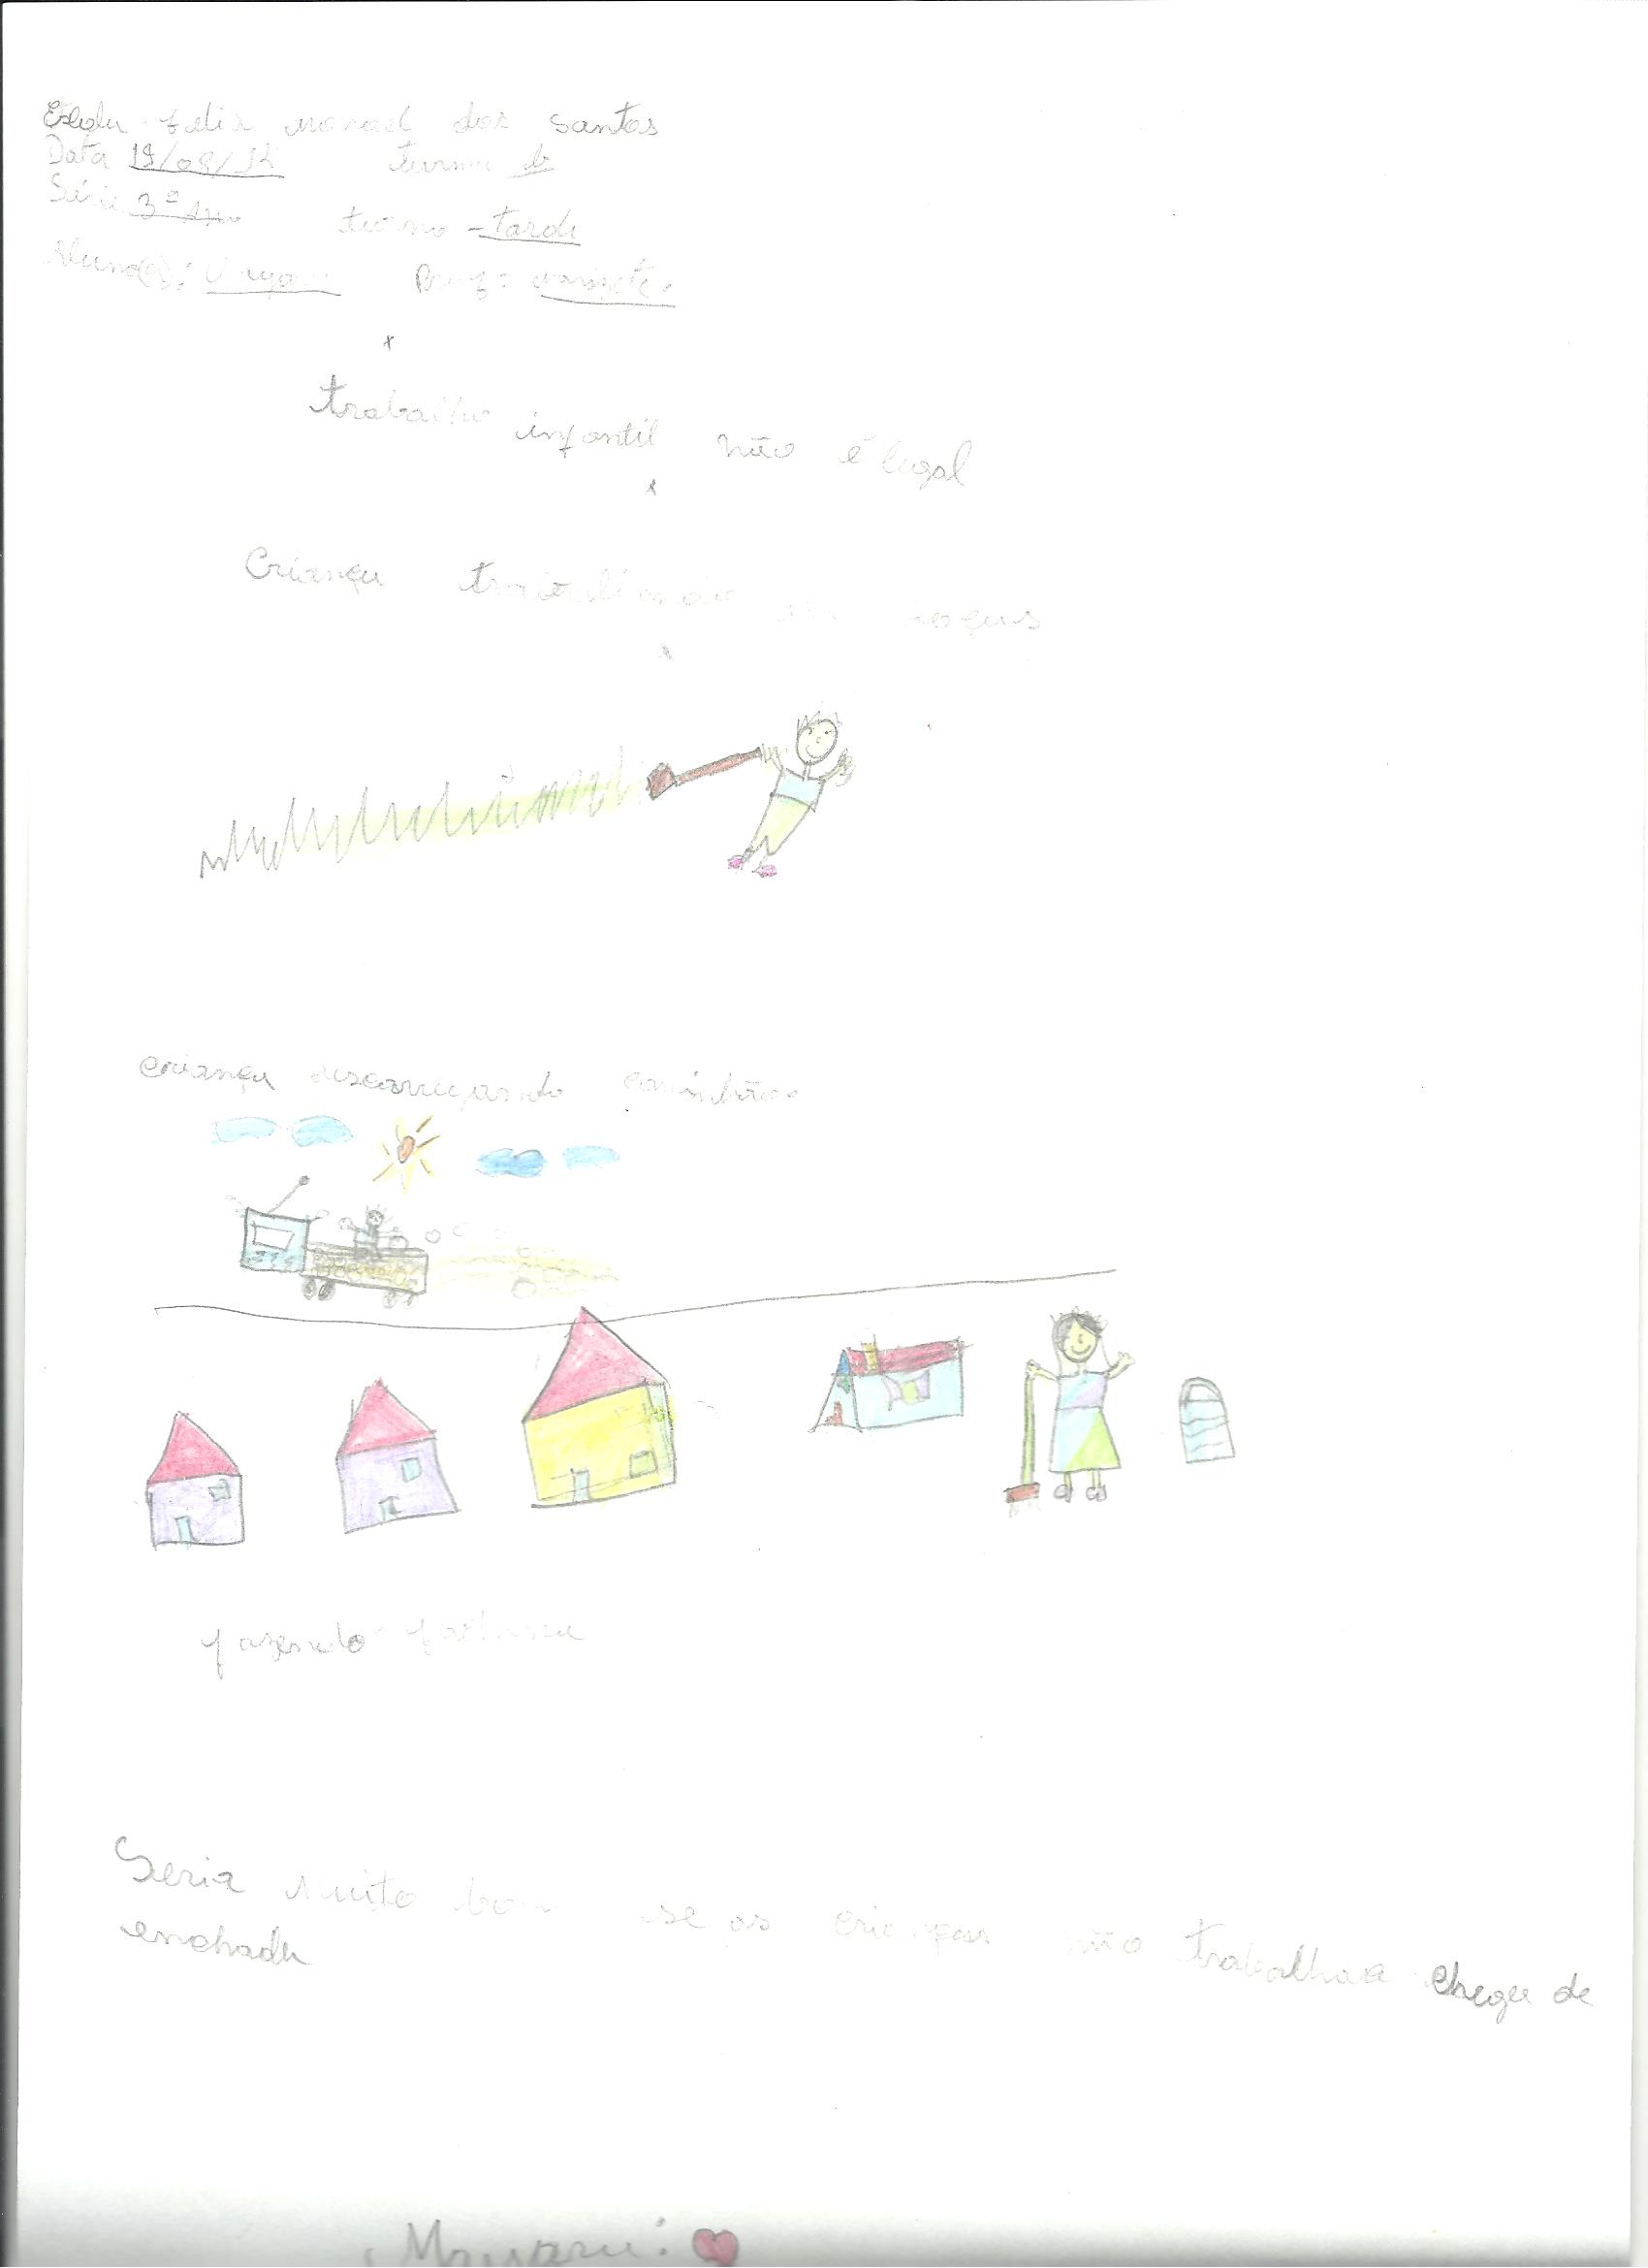 Escola felix manoel dos santos
Data 19/08/14 turma b
Série 3º Ano turno - tarde
Aluno(a): Prof: marizete.
trabalho infantil não é legal
Criança trabalhando roças
criança descarregando caminhão
fazendo fachina
Seria muito bom se as crianças não trabalhaa chega de
enchada